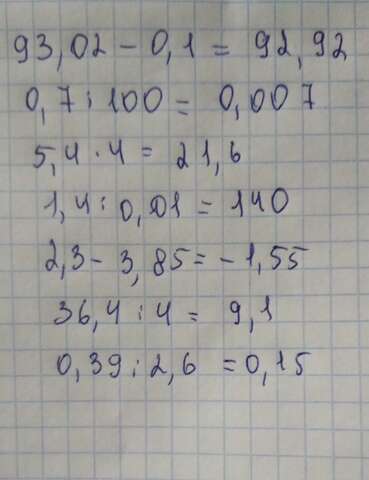 93,02 - 0,1 = 92,92
0,7 : 100 = 0,007
5,4 · 4 = 21,6
1,4 : 0,01 = 140
2,3 - 3,85 = -1,55
36,4 : 4 = 9,1
0,39 : 2,6 = 0,15